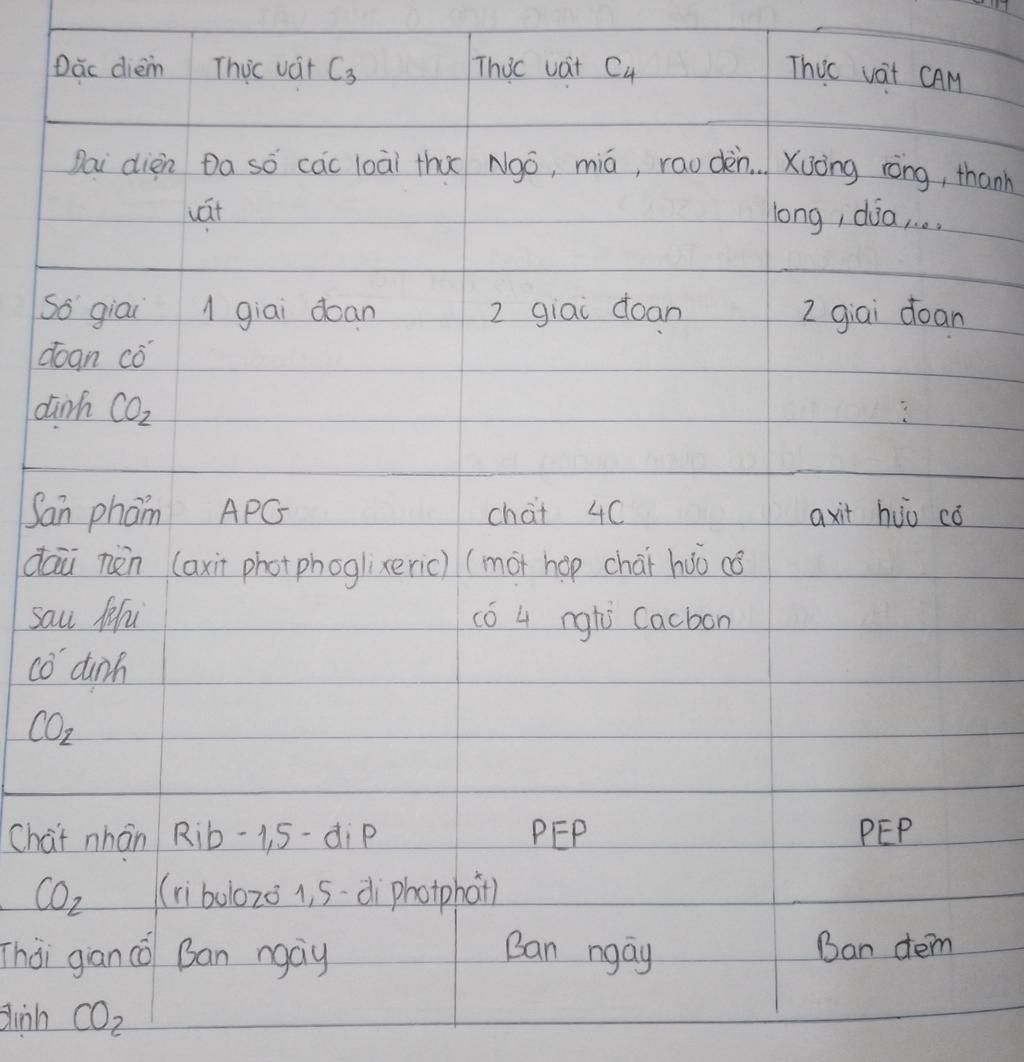 Đặc điểm Thực vật C3 Thực vật C4 Thực vật CAM
Đại diện Đa số các loài thực Ngô, miá, rau dền... Xương rồng, thanh
vật long, dứa,...
Số giai 1 giai đoạn 2 giai đoạn 2 giai đoạn
đoạn cố
định CO2
Sản phẩm APG chất 4C axit hữu cơ
đầu tiên (axit photphoglixeric) (một hợp chất hữu cơ
sau khi có 4 ngtử Cacbon
cố định
CO2
Chất nhận Rib - 1,5 - điP PEP PEP
CO2 (ribulozơ 1,5 - đi photphat)
Thời gian cố Ban ngày Ban ngày Ban đêm
định CO2